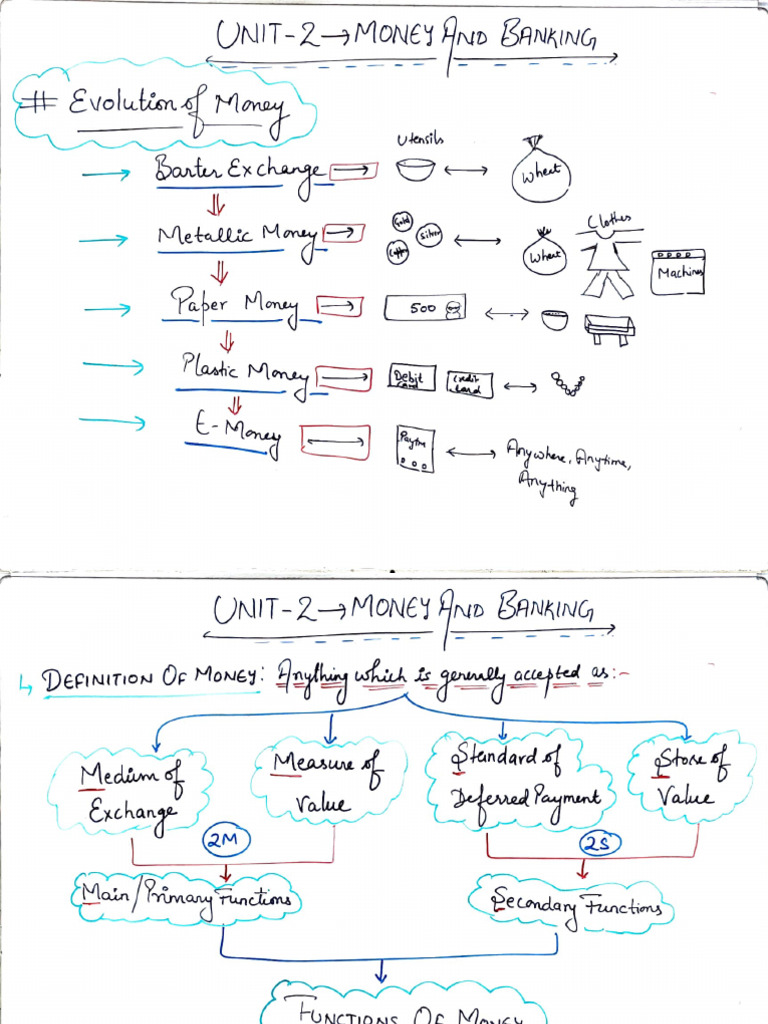 UNIT-2→MONEY AND BANKING
# Evolution of Money
Utensils
Barter Exchange → ↔ Wheat
Clothes
Metallic Money → Gold Silver Copper ↔ Wheat Machines
Paper Money → 500 ↔
Plastic Money → Debit Card Credit Card ↔
E-Money ↔ Paytm ↔ Anywhere, Anytime,
Anything
UNIT-2→MONEY AND BANKING
↳ DEFINITION OF MONEY: Anything which is generally accepted as:-
Medium of
Exchange
Measure of
Value
Standard of
Deferred Payment
Store of
Value
2M
2S
Main/Primary Functions
Secondary Functions
FUNCTIONS OF MONEY